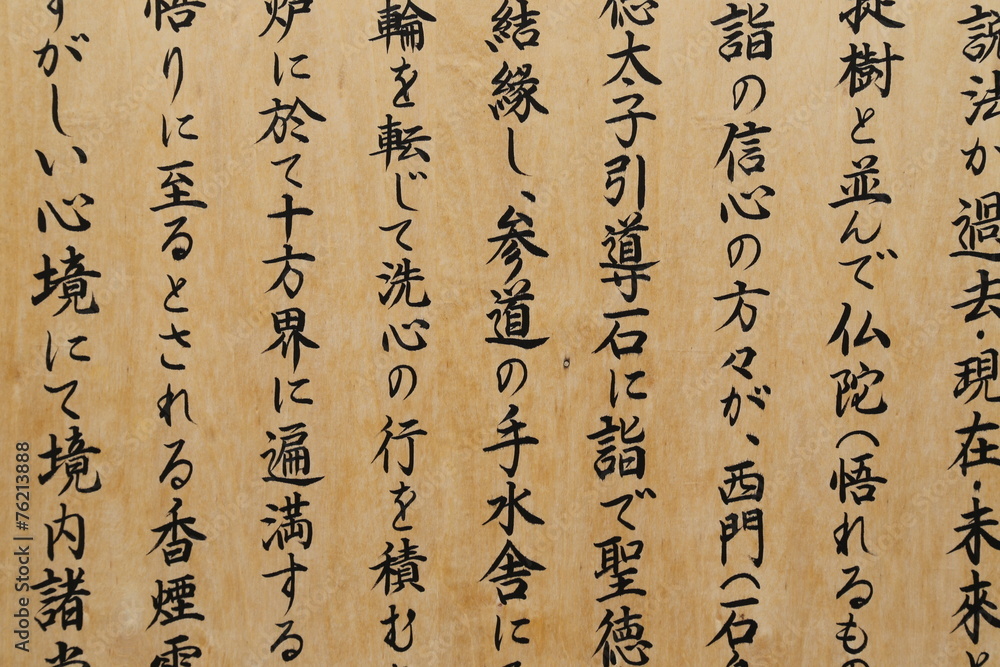 説法が過去・現在・未來と
樹と並んで仏陀(悟れるもの
詣の信心の方々が、西門(石
徳太子引導石に詣で聖徳
結縁し、参道の手水舎に
輪を転じて洗心の行を積む
炉に於て十方界に遍満する
悟りに至るとされる香煙
すがしい心境にて境内諸
Adobe Stock | #76213888